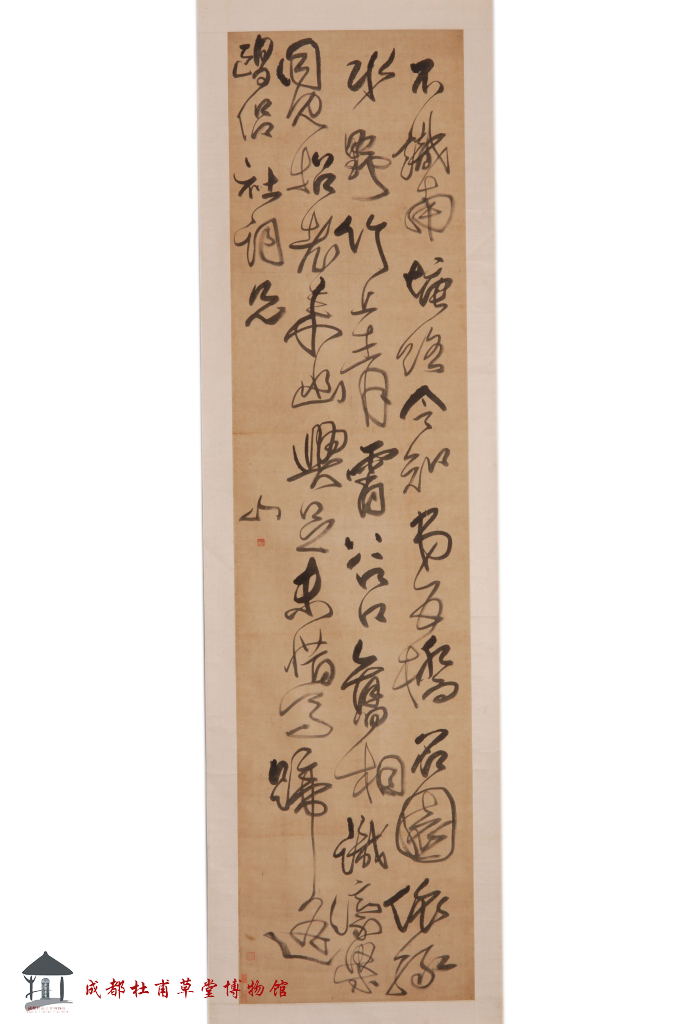 不識南塘路今知第五橋名園依綠
水野竹上青霄谷口舊相識濠梁
同見招老來幽興足未惜馬蹄遙
鷗侶社詞兄
山
成都杜甫草堂博物馆